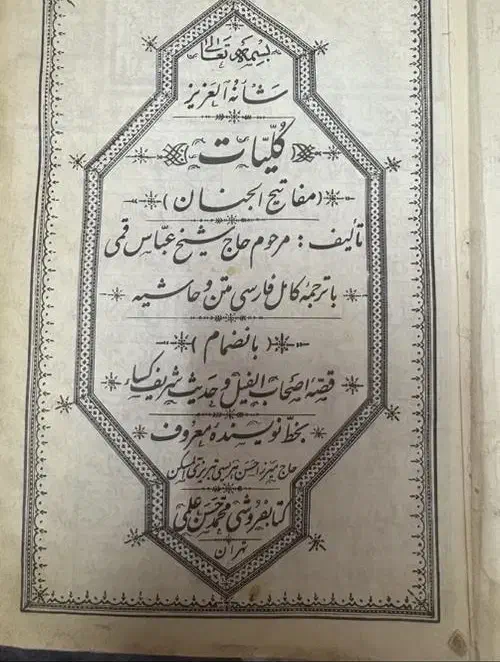 بسمه تعالی
شأنه العزیز
کلیات
(مفاتیح الجنان)
تألیف: مرحوم حاج شیخ عباس قمی
با ترجمهٔ کامل فارسی متن و حاشیه
(بانضمام)
قصهٔ اصحاب الفیل و حدیث شریف کساء
بخط نویسندهٔ معروف
حاج میرزا حسن هریسی تبریزی
کتابفروشی محمد حسن علمی
تهران